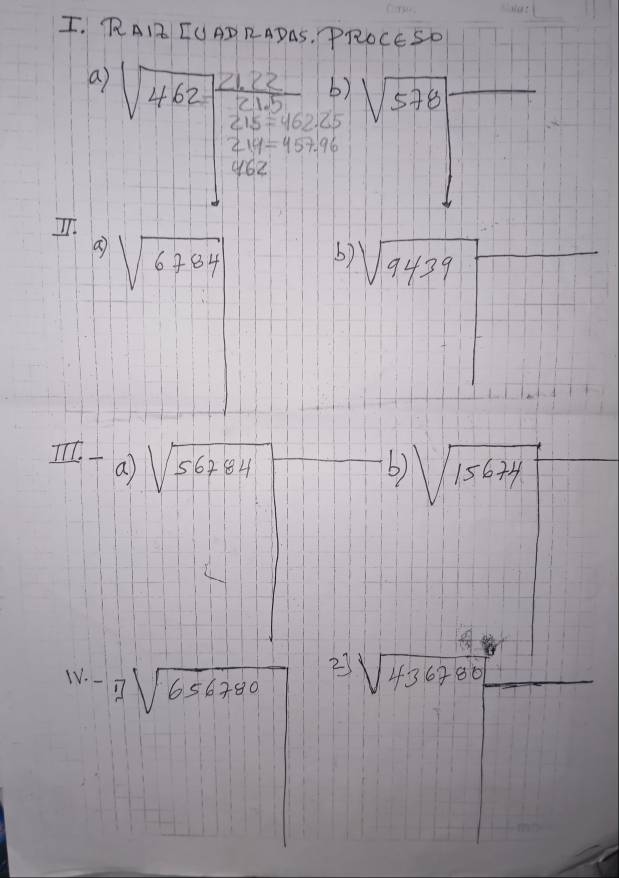 I. RAIZ CUADRADAS. PROCESO
a) √462 21.22 b) √578
21.5
215=462.25
214=457.96
462
II.
a) √6784 b) √9439
III.- a) √56784 b) √15674
IV.- 1] √656780 2] √436780